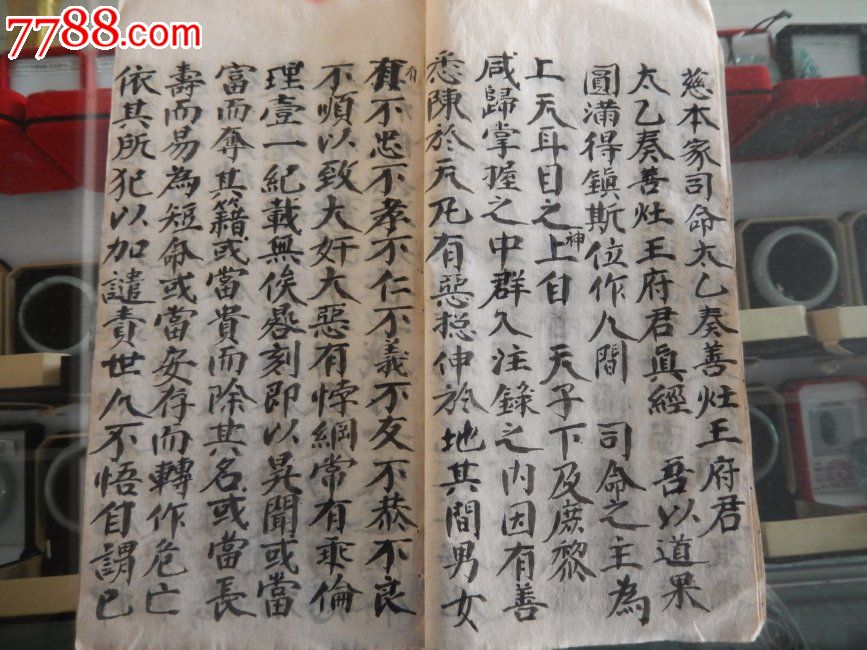 7788.com
慈本家司命太乙奏善灶王府君
太乙奏善灶王府君眞經 吾以道果
圓滿得鎮斯位作人間 司命之主為
上天耳目之神上自 天子下及庶黎
咸歸掌握之中群入注錄之內因有善
悉陳於天凡有惡揔伸於地其間男女
有不忠不孝不仁不義不友不恭不良
有
不順以致大奸大惡有悖綱常有乖倫
理壹一紀載無俟晷刻即以昇聞或當
富而奪其籍或當貴而除其名或當長
壽而易為短命或當安存而轉作危亡
依其所犯以加譴責世人不悟自謂已